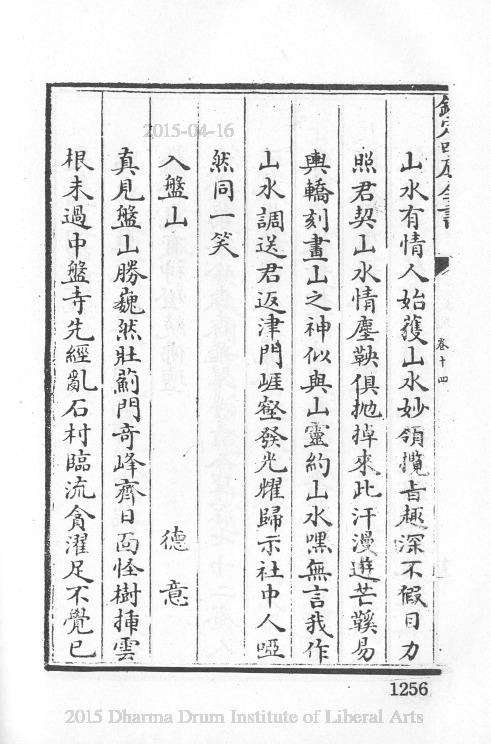 欽定四庫全書
卷十四
山水有情人始獲山水妙領攬旨趣深不假目力
照君契山水情塵鞅俱抛掉來此汗漫遊芒鞵易
輿轎刻畫山之神似與山靈約山水嘿無言我作
山水調送君返津門崕壑發光耀歸示社中人啞
然同一笑
入盤山
德意
真見盤山勝巍然壯薊門奇峰齊日面怪樹揷雲
根未過中盤寺先經亂石村臨流貪濯足不覺已
1256
2015-04-16
2015 Dharma Drum Institute of Liberal Arts